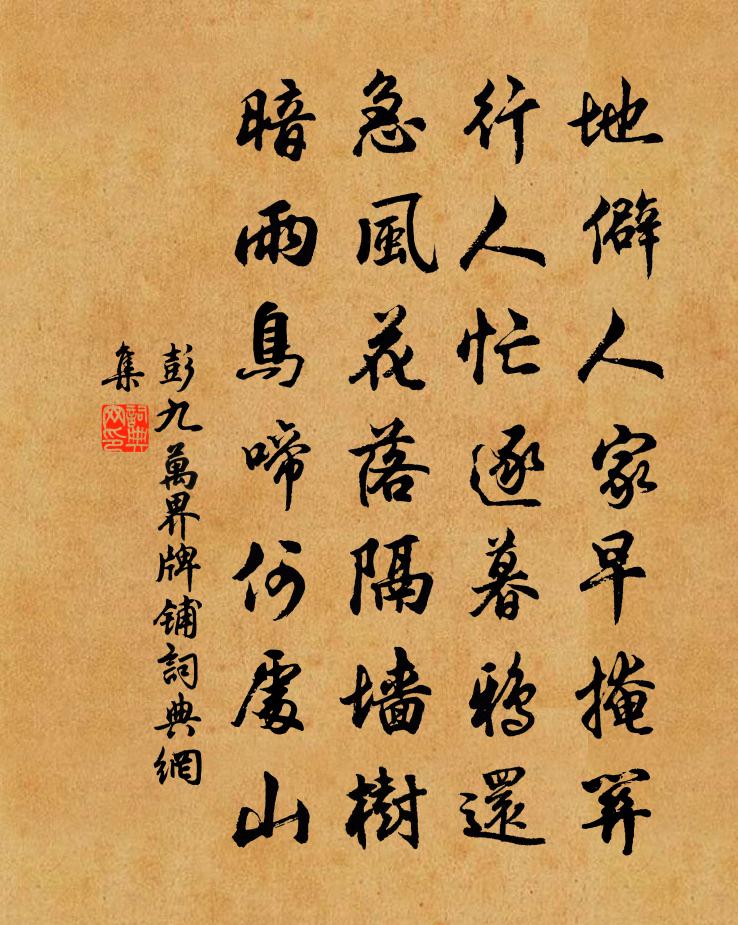 地僻人家早掩關
行人忙逐暮鴉還
急風花落隔墻樹
暗雨鳥啼何處山
彭九萬界牌鋪詞典網
集
詞典網印